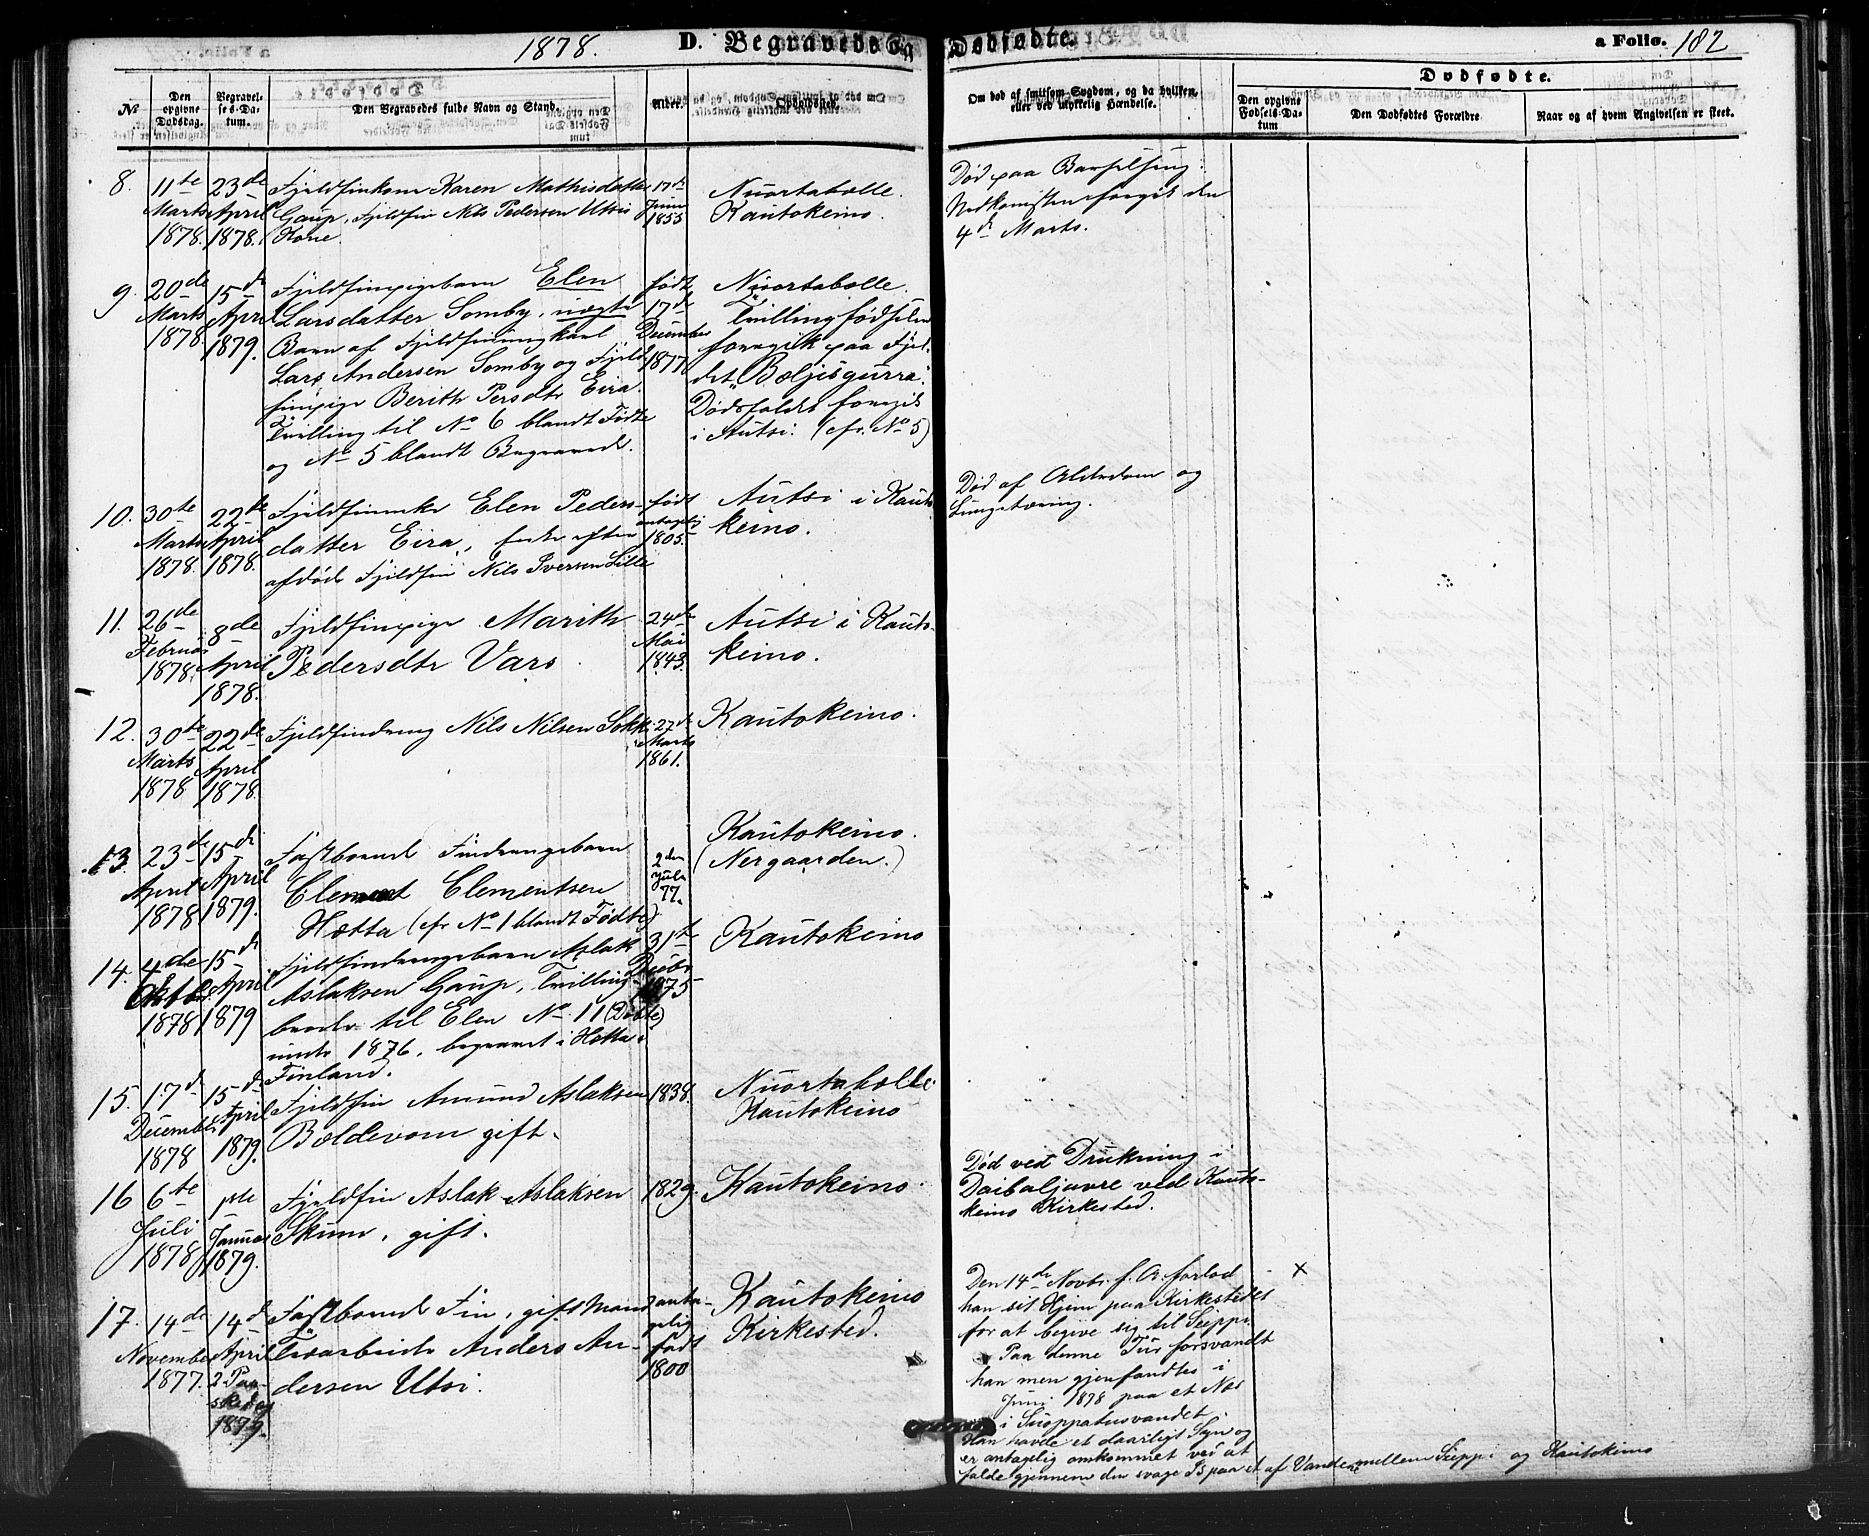 1878.
D. Begravede og Dødfødte.
a Folio. 182
№
Den opgivne Dødsdag.
Begravelses-Datum.
Den Begravedes fulde Navn og Stand.
Alder.
Opholdssted.
Om død af smitsom Sygdom, og da hvilken, eller ved ulykkelig Hændelse.
Dødfødte.
Den opgivne Fødsels-Datum
Den Dødfødtes Forældre
Naar og af hvem Angivelsen er skeet.
8.
11te Marts 1878
23de April 1878.
Fjeldfinkone Karen Mathisdatter
Gaup, Fjeldfin Nils Pedersen Utsis
Kone.
17de Juni 1855
Nuortabelle.
Kautokeino.
Død paa Barselseng:
Nedkomsten foregik den
4de Marts.
9.
20de Marts 1878
15de April 1879.
Fjeldfinpigebarn Elen
Larsdatter Somby, uægte
Barn af Fjeldfinungkarl
Lars Andersen Somby og Fjeld-
finpige Berith Persdtr Eira.
Tvilling til No 6 blandt Fødte
og No 5 blandt Begravede.
født 17de December 1877
Nuortabelle.
Tvillingfødselen
foregik paa Fjel-
det "Bæljisgurra".
Dødsfaldet foregik
i Autsi. (cfr. No 5)
10.
30te Marts 1878.
22de April 1878.
Fjeldfinenke Elen Peders-
datter Eira, enke efter
afdøde Fjeldfin Nils Iversen Lille
født antagelig 1805.
Autsi i Kauto-
keino.
Død af Alderdom og
Lungetæring.
11.
26de Februar 1878.
8de April 1878.
Fjeldfinpige Marith
Pedersdtr Vars.
24de Mai 1843.
Autsi i Kauto-
keino.
12.
30te Marts 1878
22de April 1878.
Fjeldfindreng Nils Nilsen Sokki
27de Marts 1861.
Kautokeino.
13.
23de April 1878
15de April 1879.
Fastboende Findrengebarn
Clement Clementsen
Hætta (cfr No 1 blandt Fødte)
2den Juli 77.
Kautokeino.
(Nergaarden.)
14.
4de Oktbr 1878
15de April 1879
Fjeldfindrengebarn Aslak
Aslaksen Gaup, Tvilling-
broder til Elen No 11 (Døbte)
under 1876, begravet i Hetta i
Finland.
31te Decbr 1875
Kautokeino
15.
17de December 1878
15de April 1879.
Fjeldfin Amund Aslaksen
Bældevom gift.
1838.
Nuortabelle.
Kautokeino
16
6te Juli 1878
1ste Januar 1879.
Fjeldfin Aslak Aslaksen
Skum, gift.
1829.
Kautokeino.
Død ved Drukning i
Daibaljavre ved Kauto-
keino Kirkested.
17.
14de November 1877.
14de April 2 Paaskedag 1879.
Fastboende Fin, gift Mand
Anders An-
dersen Utsi.
antagelig født 1800
Kautokeino
Kirkested.
Den 14de Novbr. f. A. forlod
han sit Hjem paa Kirkestedet
for at begive sig til Sieppi.
Paa denne Tur forsvandt
han men gjenfandtes i
Juni 1878 paa et Næs
i Suoppatusvandet.
Han havde et daarligt Syn og
er antagelig omkommet ved at
falde gjennem den svage Is paa et af Vandene mellem Sieppi og Kautokeino
×